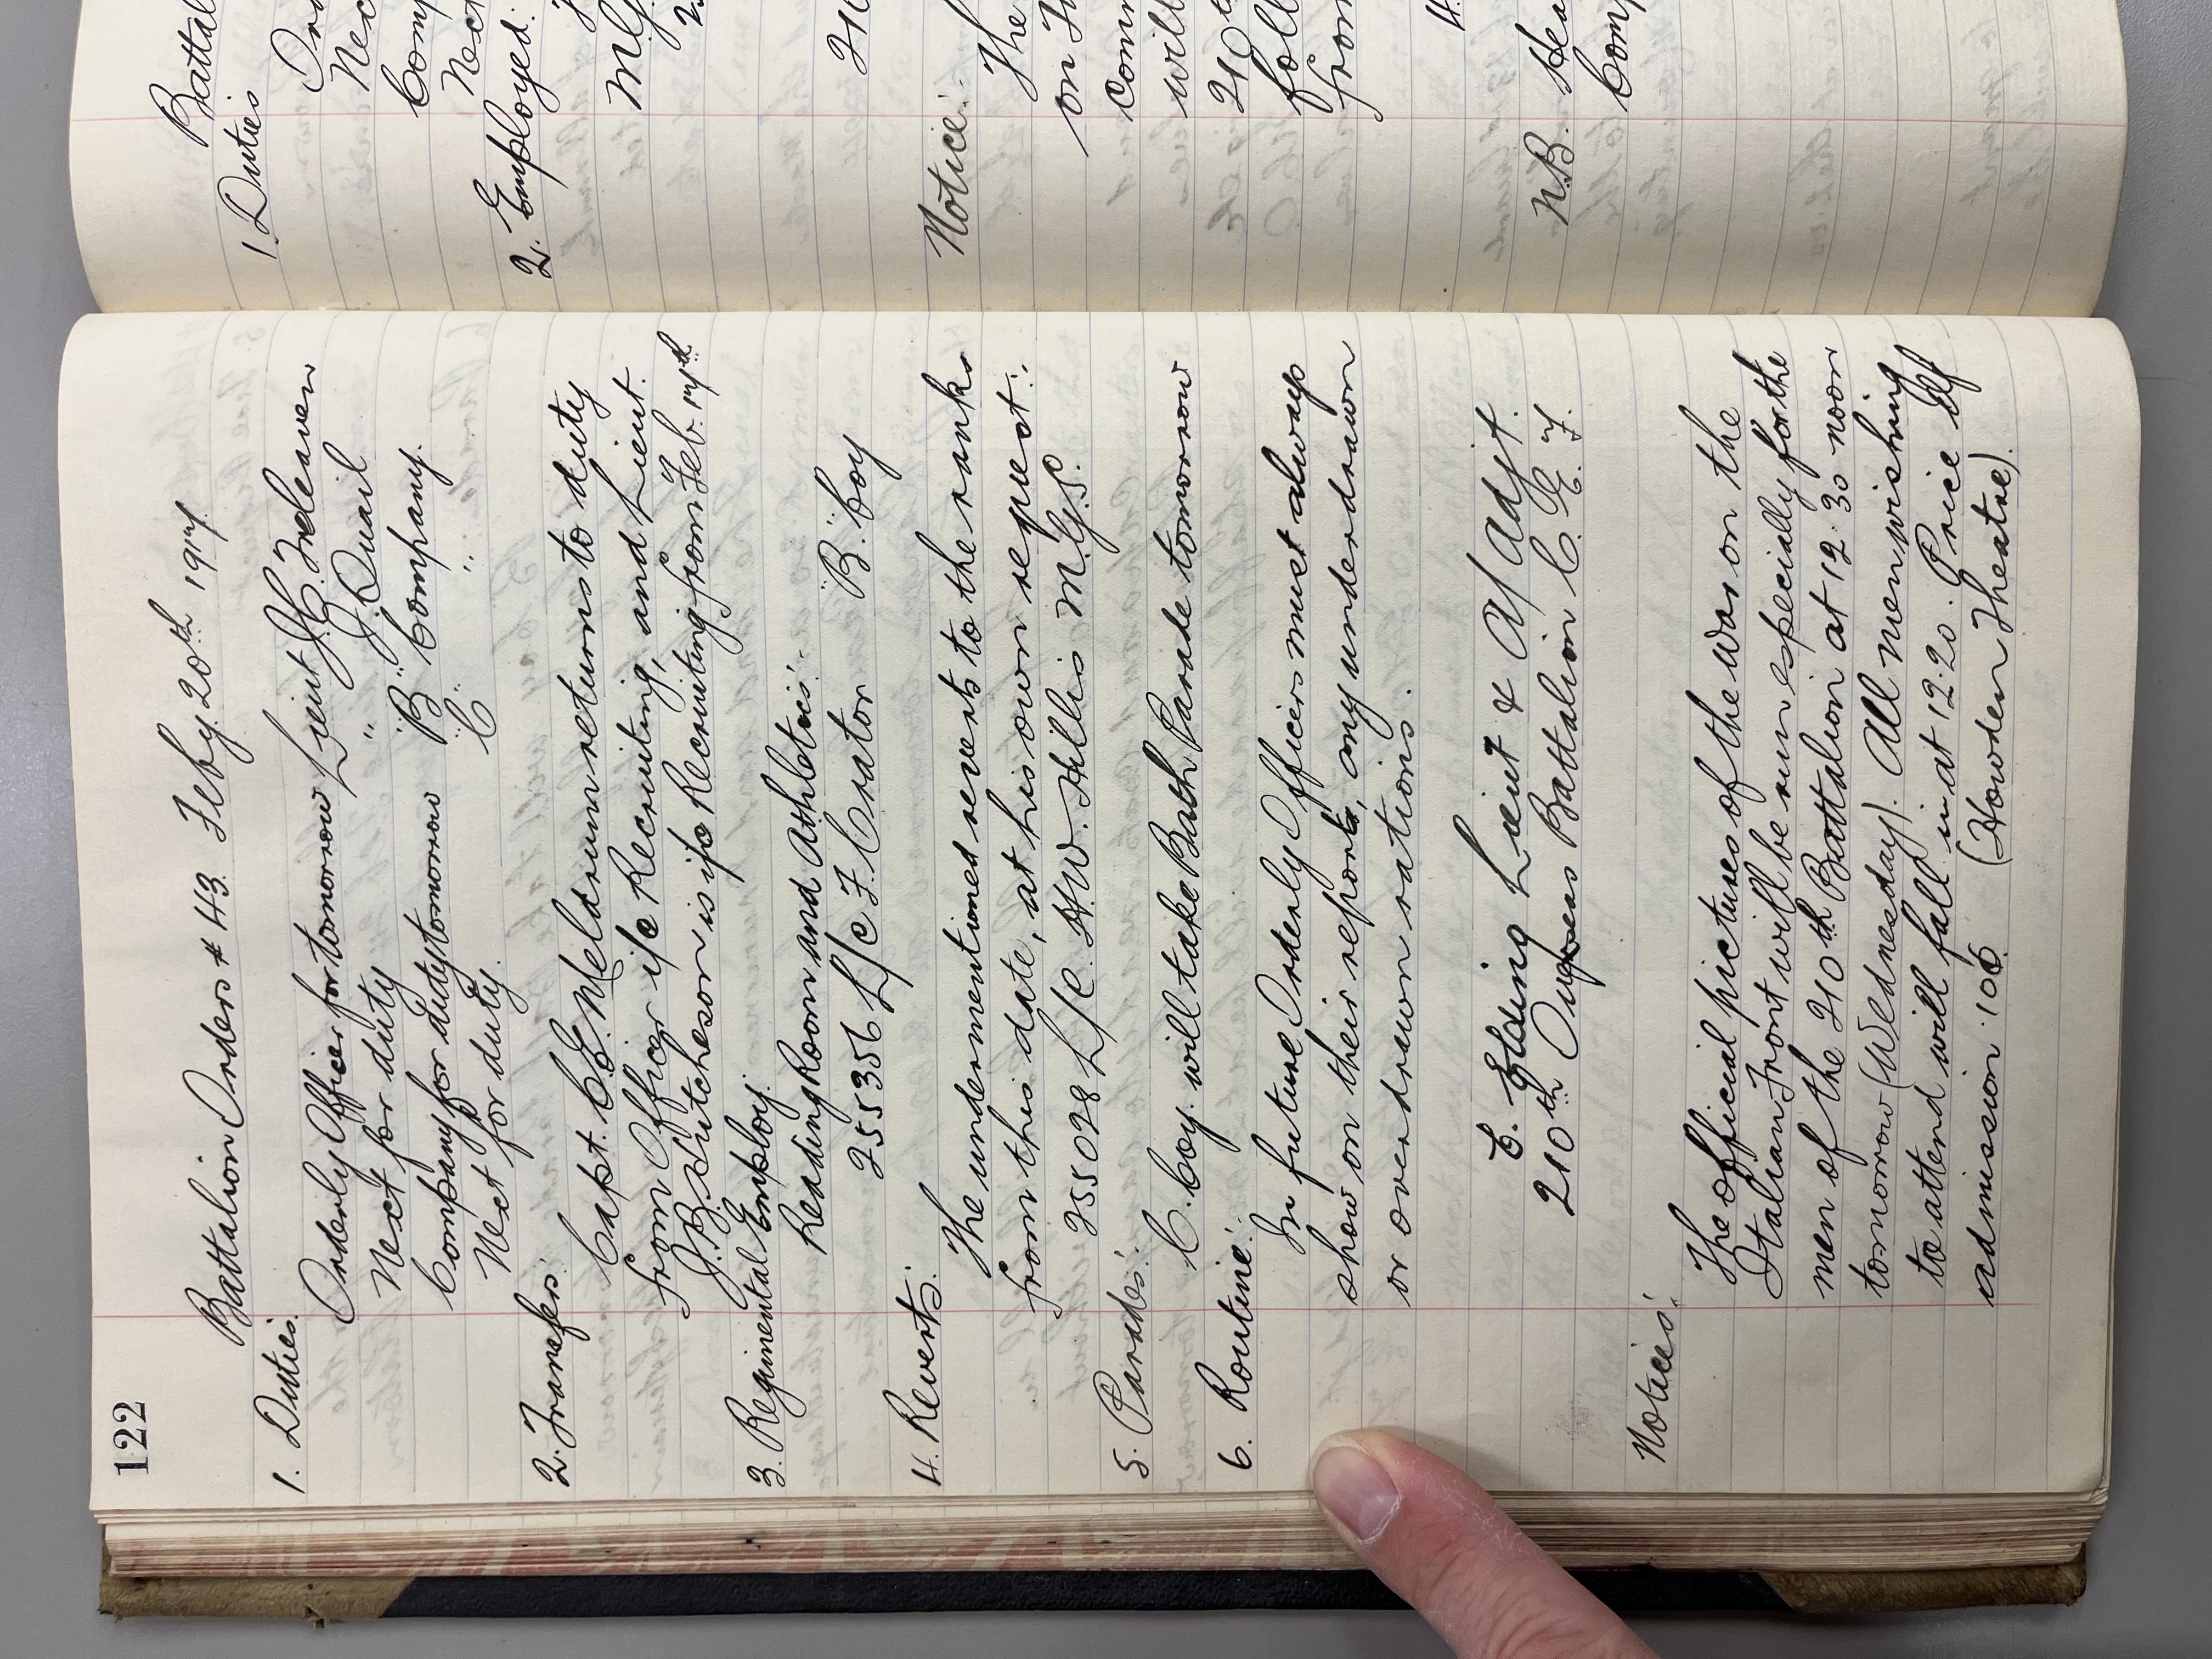 122
Battalion Orders # 43. Feby. 20th 1917.
1. Duties.
Orderly Officer for tomorrow Lieut J.C. Treleaven
Next for duty " J. Quail
Company for duty tomorrow "B" Company.
Next for duty. "C" "
2. Transfers:
Capt. C.E. Meldrum returns to duty
from Officer i/c Recruiting, and Lieut.
J.B. Hutcheson is i/c Recruiting from Feb. 17th
3. Regimental Employ.
Reading Room and Athletics:-
255356 L/c F. Crator "B" Coy
4. Reverts:
The undermentioned reverts to the ranks
from this date, at his own request:-
255028 L/c. H.W. Hillis M.G.S.
5. Parades:
C. Coy. will take Bath Parade tomorrow
6. Routine:
In future Orderly Officers must always
show on their reports, any underdrawn
or overdrawn rations.
C. Elding Lieut & A/Adjt.
210th Overseas Battalion C.E.F.
Notices:
The official pictures of the war on the
Italian Front will be run specially for the
men of the 210th Battalion at 12.30 noon
tomorrow (Wednesday). All men wishing
to attend will fall in at 12.20. Price of
admission 10¢ (Howden Theatre).
Battal
1. Duties
Ord
Nex
Comp
Next
2. Employed:
M.G.
210
Notice:-
The
on
Comm
will
210t
foll
from
N.B. Hea
Comp